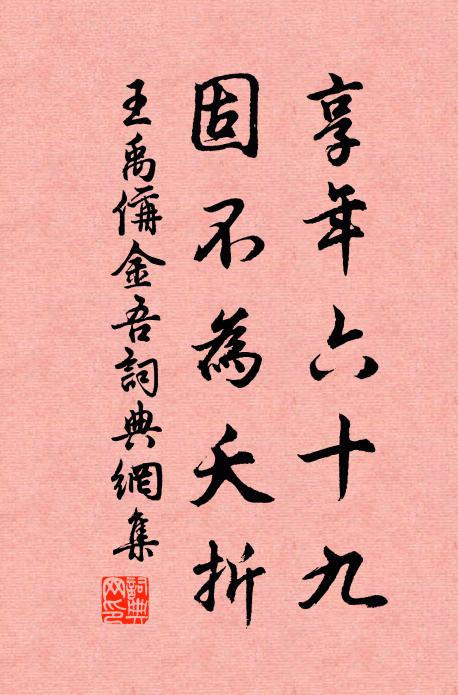 享年六十九
固不為夭折
王禹偁金吾詞典網集
詞典网印